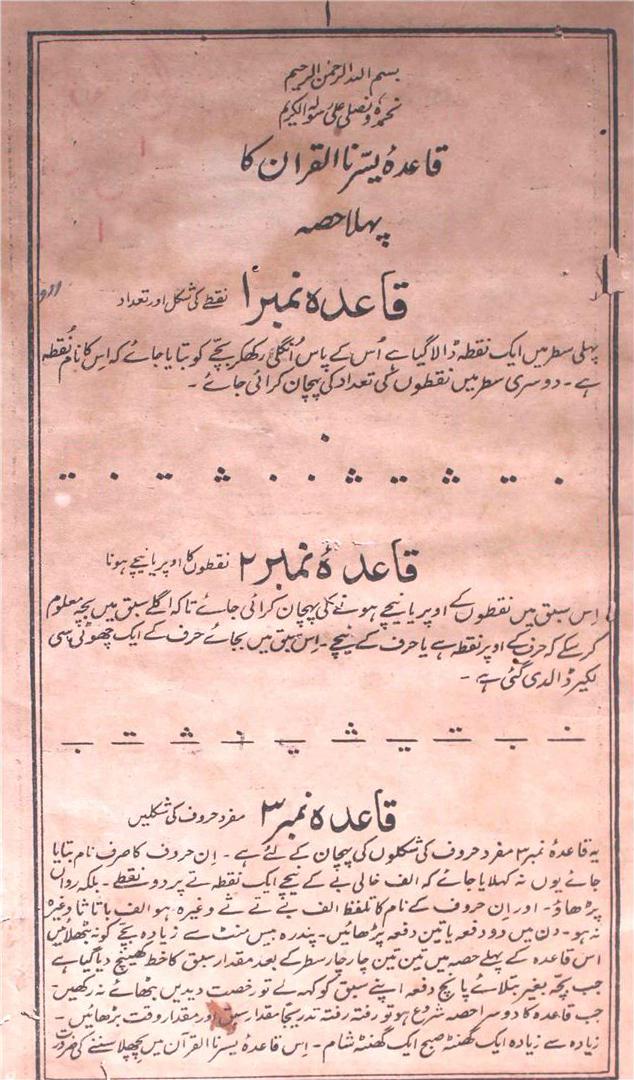 ا
بسم اللہ الرحمن الرحیم
نحمدہٗ ونصلی علیٰ رسولہ الکریم
قاعدۂ یسّرنا القرآن کا
پہلا حصہ
قاعدہ نمبر۱ نقطے کی شکل اور تعداد
پہلی سطر میں ایک نقطہ ڈالا گیا ہے اُس کے پاس اُنگلی رکھکر بچّے کو بتایا جائے کہ اِس کا نام نُقطہ
ہے۔ دوسری سطر میں نقطوں کی تعداد کی پہچان کرائی جائے۔
قاعدۂ نمبر۲ نقطوں کا اوپر یا نیچے ہونا
اِس سبق میں نقطوں کے اوپر یا نیچے ہونے کی پہچان کرائی جائے تا کہ اگلے سبق میں بچہ معلوم
کر سکے کہ حرف کے اوپر نقطہ ہے یا حرف کے نیچے۔ اِس سبق میں بجائے حرف کے ایک چھوٹی سی
لکیر ڈالدی گئی ہے۔
قاعدہ نمبر۳ مفرد حروف کی شکلیں
یہ قاعدۂ نمبر۳ مفرد حروف کی شکلوں کی پہچان کے لئے ہے۔ اِن حروف کا صرف نام بتایا
جائے یوں نہ کہلایا جائے کہ الف خالی بے کے نیچے ایک نقطہ تے پر دو نقطے۔ بلکہ رواں
پڑھاؤ۔ اور اِن حروف کے نام کا تلفظ الف بے تے ثے وغیرہ ہو الف با تا ثا وغیرہ
نہ ہو۔ دن میں دو دفعہ یا تین دفعہ پڑھائیں۔ پندرہ بیس منٹ سے زیادہ بچّے کو نہ بٹھلائیں
اس قاعدہ کے پہلے حصہ میں تین تین چار چار سطر کے بعد مقدار سبق کا خط کھینچ دیا گیا ہے
جب بچّہ بغیر بتلائے پانچ دفعہ اپنے سبق کو کہہ لے تو رخصت دیدیں بٹھائے نہ رکھیں۔
جب قاعدہ کا دوسرا حصہ شروع ہو تو رفتہ رفتہ تدریجًا مقدار سبق اور مقدار وقت بڑھائیں۔
زیادہ سے زیادہ ایک گھنٹہ صبح ایک گھنٹہ شام۔ اِس قاعدۂ یسرنا القرآن میں پچھلا سننے کی ضرورت